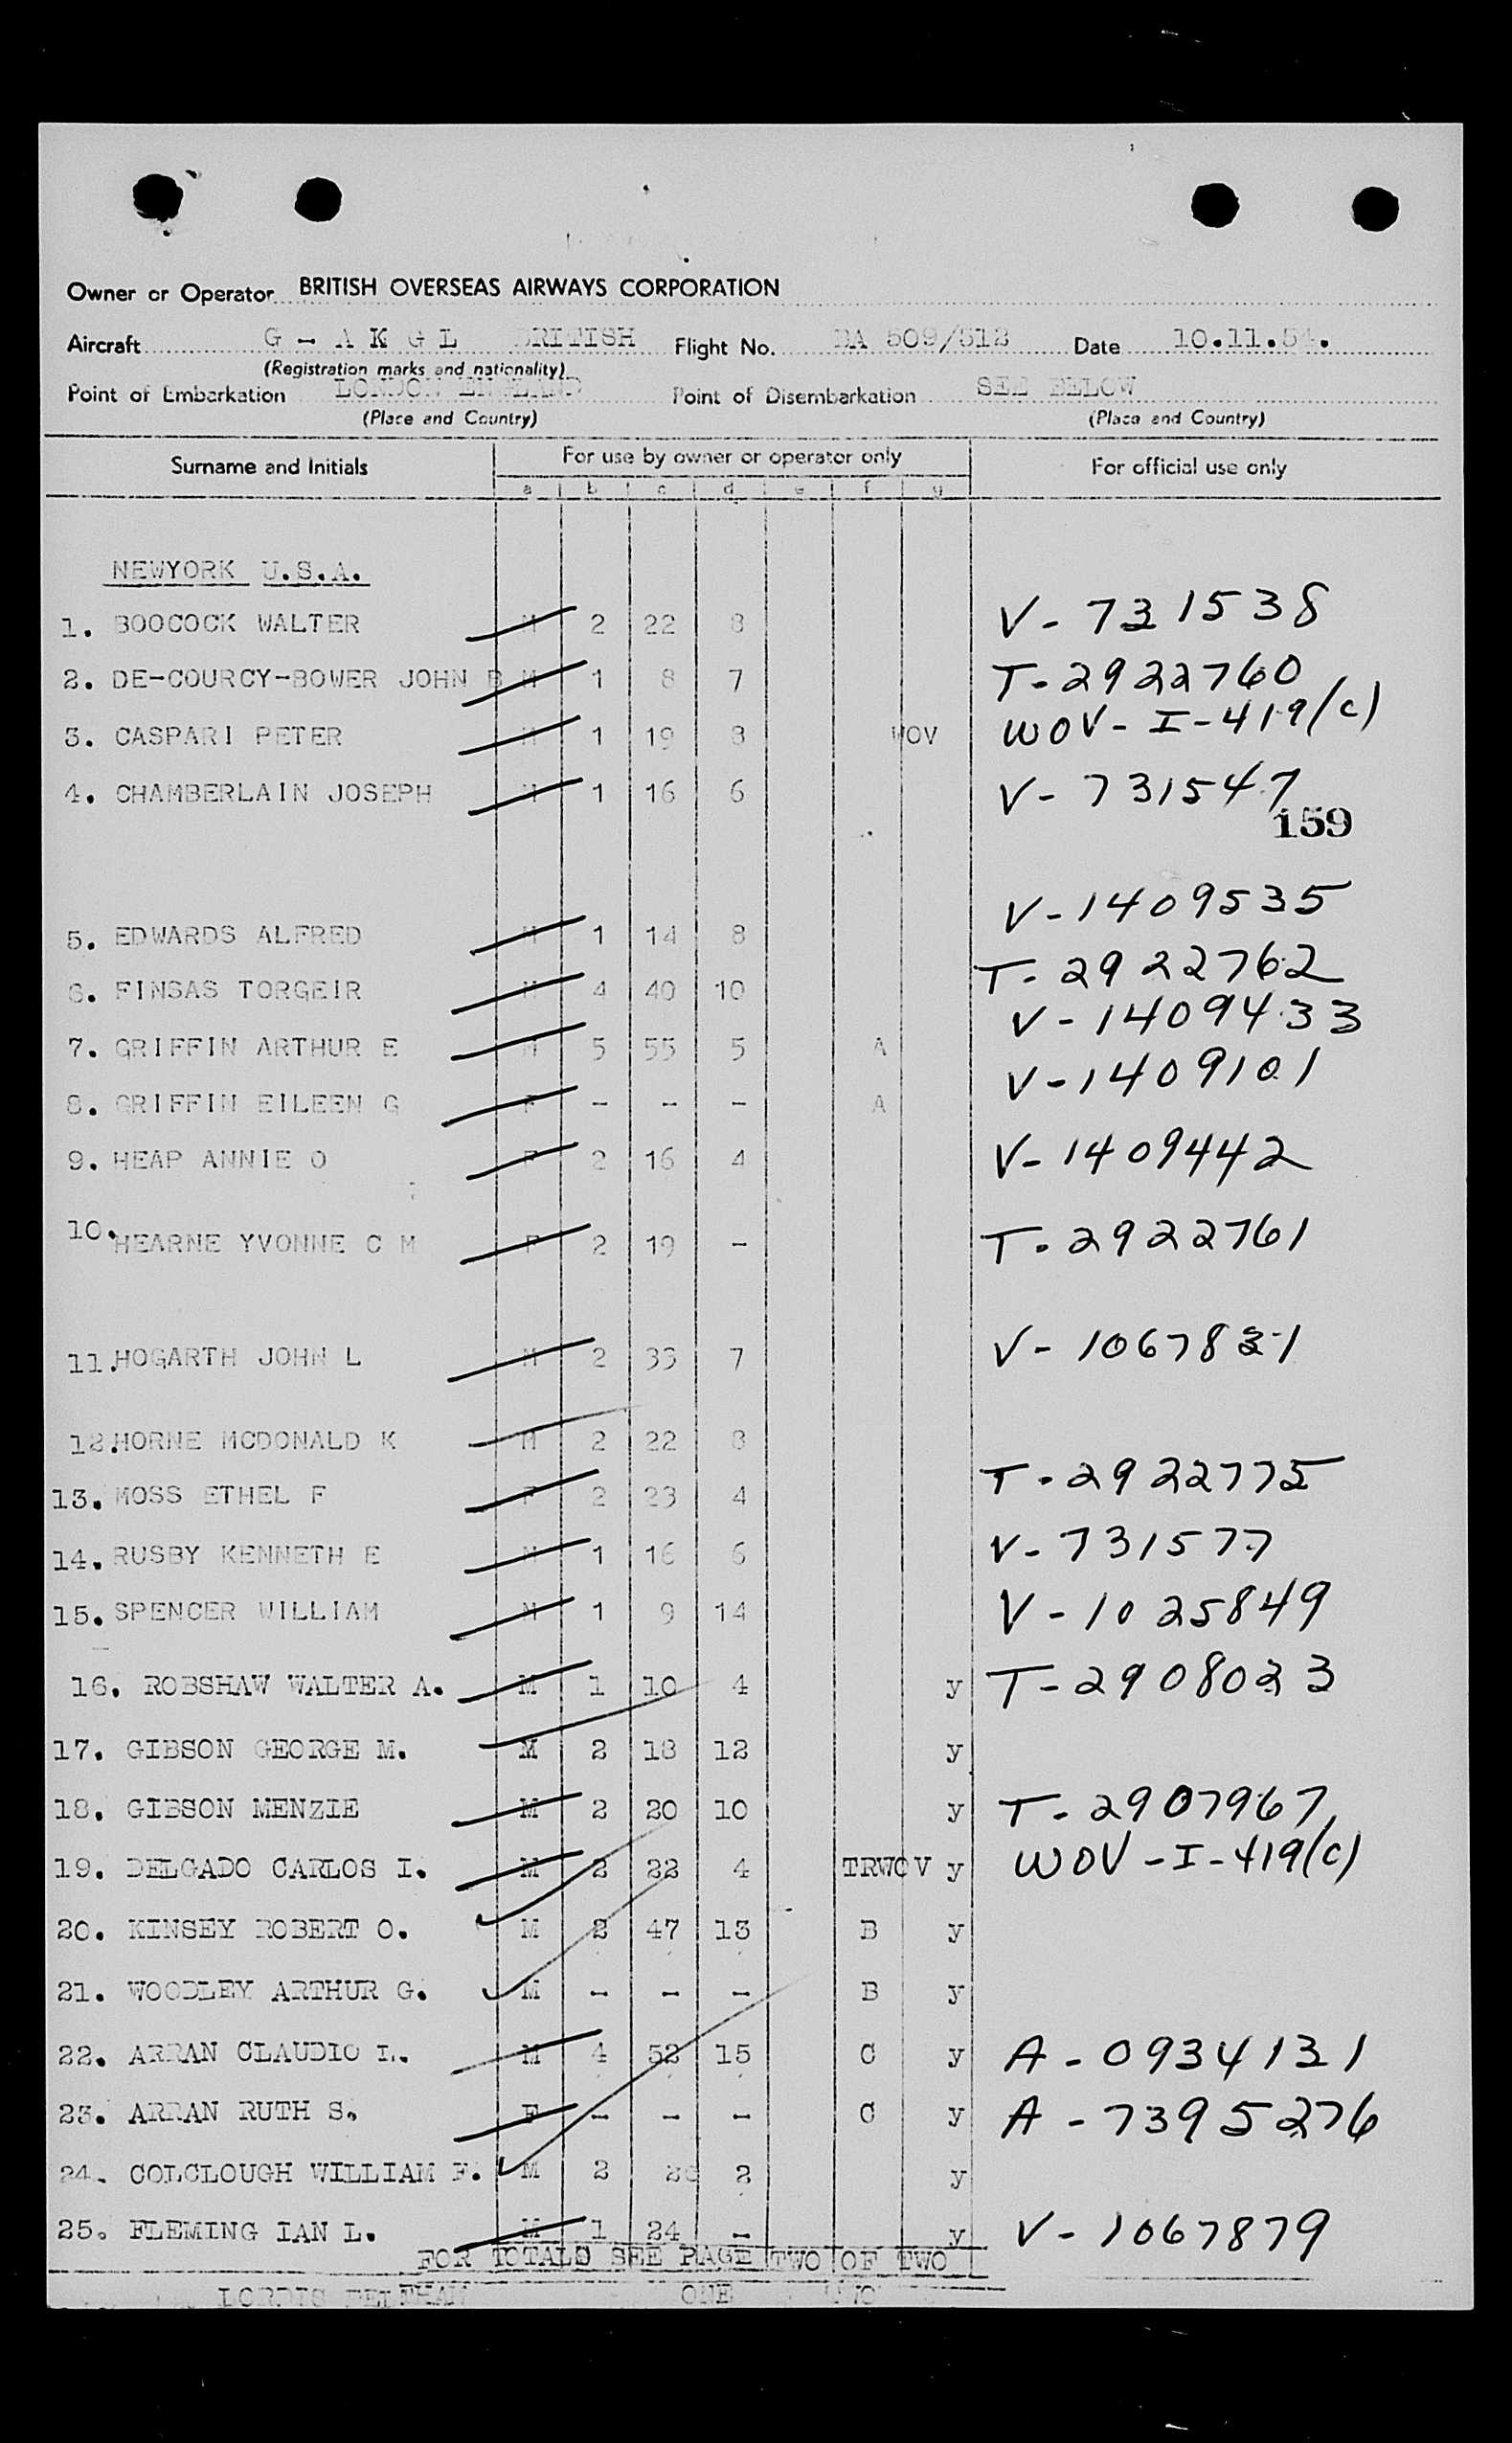 Owner or Operator BRITISH OVERSEAS AIRWAYS CORPORATION
Aircraft G - A K G L BRITISH Flight No. BA 509/512 Date 10.11.54.
(Registration marks and nationality)
Point of Embarkation LONDON ENGLAND Point of Disembarkation SEE BELOW
(Place and Country) (Place and Country)
Surname and Initials For use by owner or operator only For official use only
a b c d e f g
NEWYORK U.S.A.
1. BOOCOCK WALTER M 2 22 8 V- 731538
2. DE-COURCY-BOWER JOHN B M 1 8 7 T-2922760
3. CASPARI PETER M 1 19 8 WOV WOV-I-419/(c)
4. CHAMBERLAIN JOSEPH M 1 16 6 V- 731547
159
5. EDWARDS ALFRED M 1 14 8 V-1409535
6. FINSAS TORGEIR M 4 40 10 T-2922762
7. GRIFFIN ARTHUR E M 5 55 5 A V-1409433
8. GRIFFIN EILEEN G F - - - A V-1409101
9. HEAP ANNIE O F 2 16 4 V-1409442
10. HEARNE YVONNE C M F 2 19 - T-2922761
11. HOGARTH JOHN L M 2 33 7 V-1067831
12. HORNE MCDONALD K M 2 22 8
13. MOSS ETHEL F F 2 23 4 T-2922775
14. RUSBY KENNETH E M 1 16 6 V-731577
15. SPENCER WILLIAM M 1 9 14 V-1025849
16. ROBSHAW WALTER A. M 1 10 4 y T-2908023
17. GIBSON GEORGE M. M 2 18 12 y
18. GIBSON MENZIE M 2 20 10 y T-2907967
19. DELGADO CARLOS I. M 2 22 4 TRWOV y WOV-I-419/(c)
20. KINSEY ROBERT O. M 2 47 13 B y
21. WOODLEY ARTHUR G. M - - - B y
22. ARRAN CLAUDIO L. M 4 52 15 C y A-0934131
23. ARRAN RUTH S. F - - - C y A-7395276
24. COLCLOUGH WILLIAM F. M 2 2 y
25. FLEMING IAN L. M 1 24 - y V-1067879
FOR TOTALS SEE PAGE TWO OF TWO
ONE